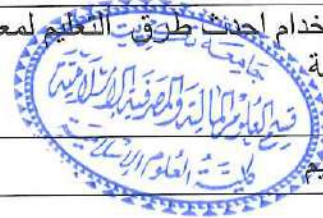 خدام احدث طرق التعليم لمع
ة
جامعة تكريت
قسم العلوم المالية والمصرفية الاسلامية
كلية العلوم الاسلامية
يم